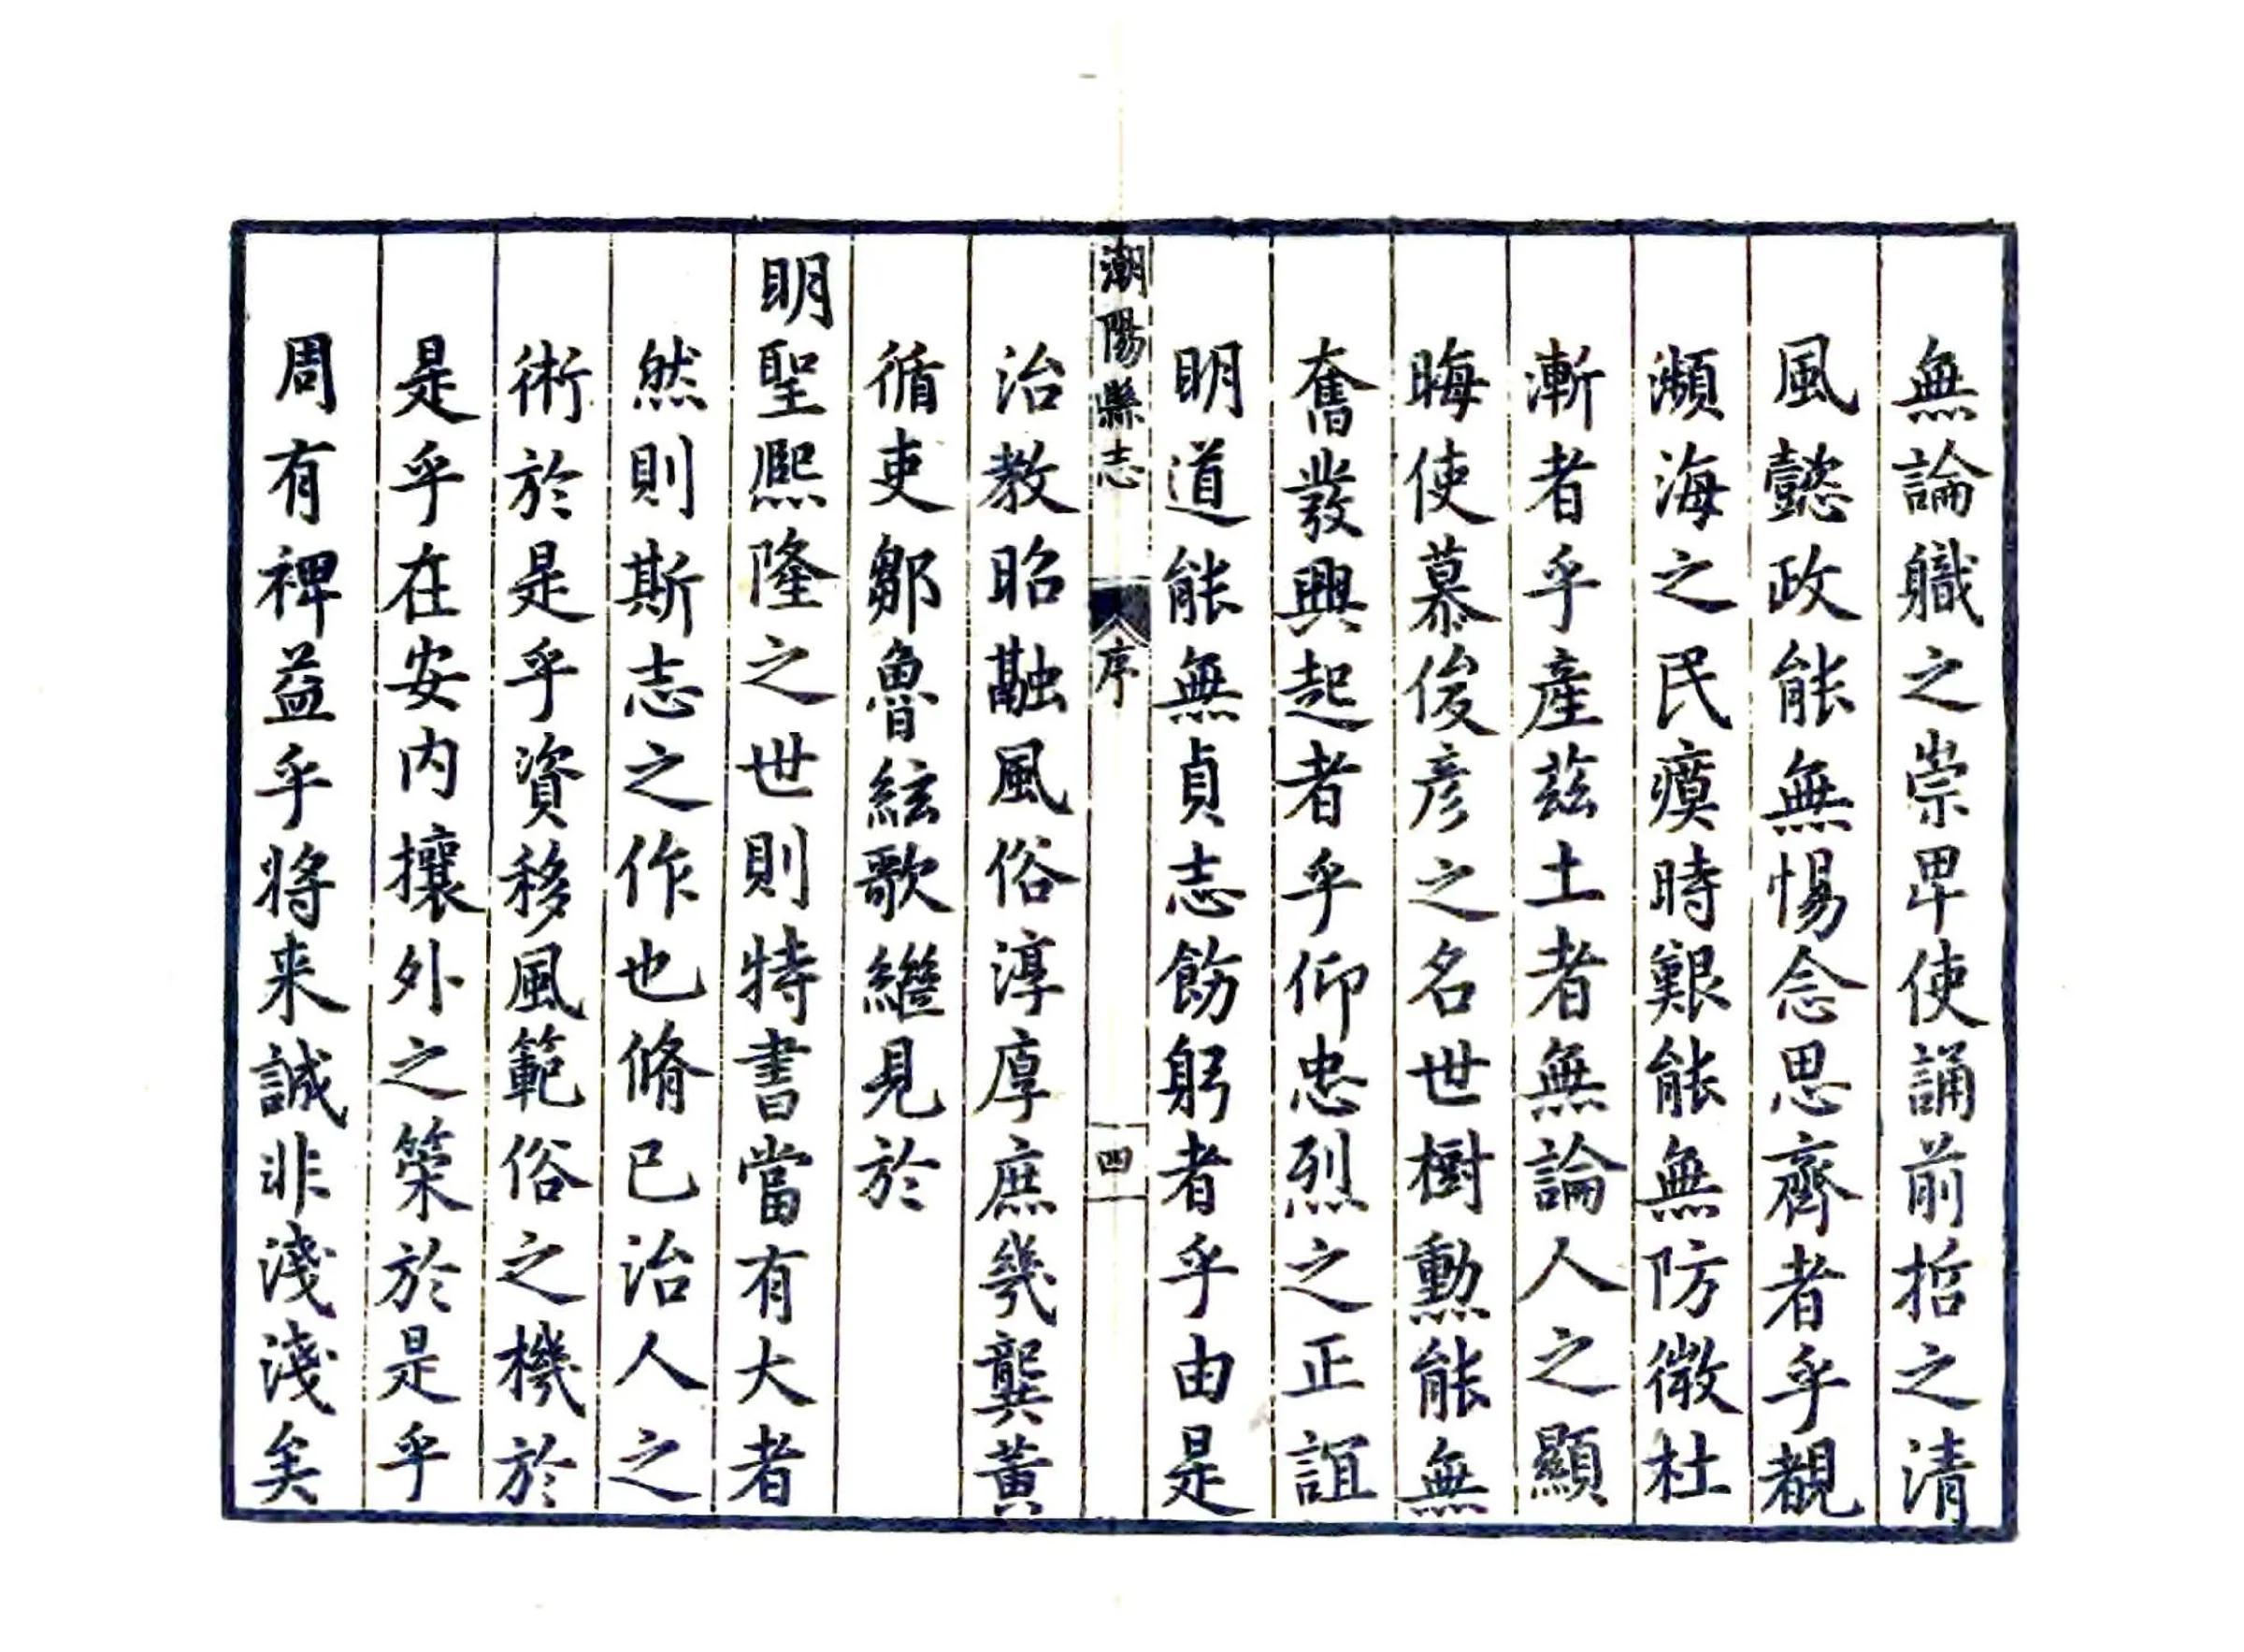 無論職之崇卑使誦前哲之清
風懿政能無惕念思齊者乎覩
瀕海之民瘼時艱能無防微杜
漸者乎產茲土者無論人之顯
晦使慕俊彥之名世樹勳能無
奮發興起者乎仰忠烈之正誼
明道能無貞志飭躬者乎由是
潮陽縣志
序
四
治教昭融風俗淳厚庶幾龔黃
循吏鄒魯絃歌繼見於
明聖熙隆之世則特書當有大者
然則斯志之作也脩己治人之
術於是乎資移風範俗之機於
是乎在安內攘外之策於是乎
周有裨益乎將來誠非淺淺矣